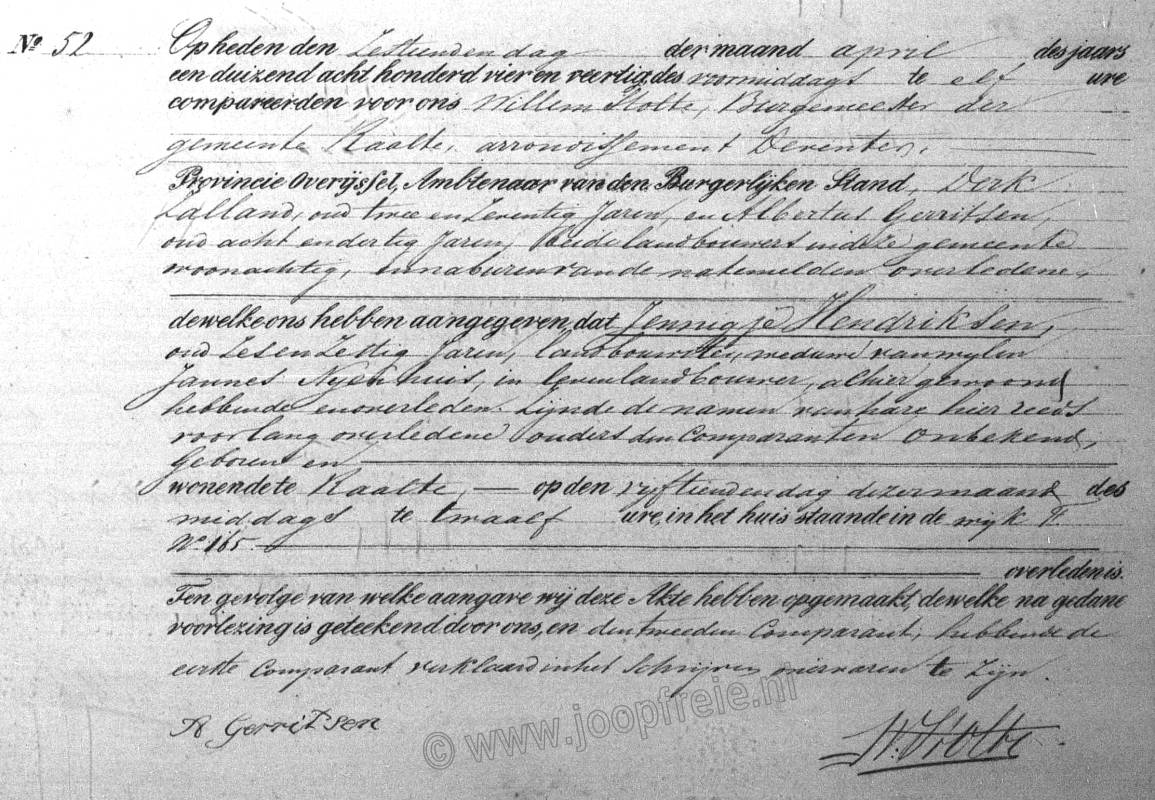 No 52 Op heden den Zestienden dag der maand april des jaars
een duizend acht honderd vier en veertig, des voormiddags te elf ure
compareerden voor ons Willem Stolte, Burgemeester der
gemeente Raalte, arrondissement Deventer,
Provincie Overijssel, Ambtenaar van den Burgerlijken Stand, Derk
Lalland, oud twee en Zeventig Jaren, en Albertus Gerritsen,
oud acht en dertig Jaren, Beide landbouwers in deze gemeente
woonachtig, en naburen van de natemelden overledene,
dewelke ons hebben aangegeven, dat Jennigje Hendriksen,
oud Zes en Zestig Jaren, landbouwster, weduwe van wylen
Jannes Nyenhuis, in leven landbouwer, alhier gewoond
hebbende en overleden. Zynde de namen van hare hier reeds
voorlang overledene ouders den Comparanten onbekend,
geboren en
wonende te Raalte, op den vyftienden dag dezer maand des
middags te twaalf ure, in het huis staande in de wyk
No 165.
overleden is.
Ten gevolge van welke aangave wij deze Akte hebben opgemaakt, dewelke na gedane
voorlezing is geteekend door ons, en den tweeden Comparant, hebbende de
eerste Comparant verklaard in het Schryven onervaren te Zyn.
A Gerritsen
W. Stolte
© www.joopfreie.nl